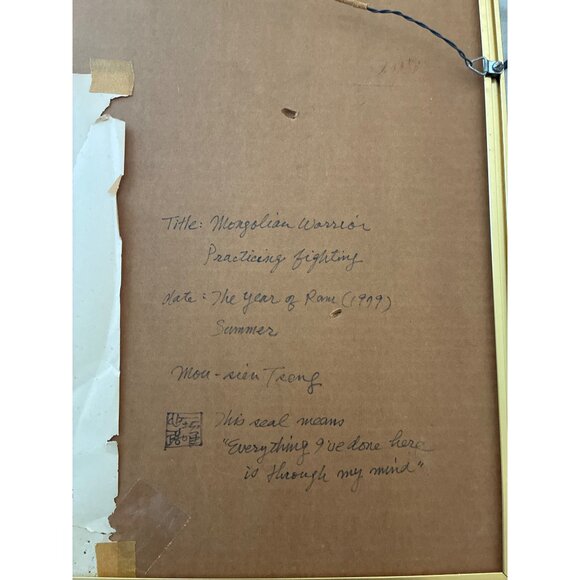 Title: Mongolian Warrior
Practicing fighting
date: The year of Ram (1979)
Summer
Mou-sien Tseng
This seal means
"Everything I've done here
is through my mind"